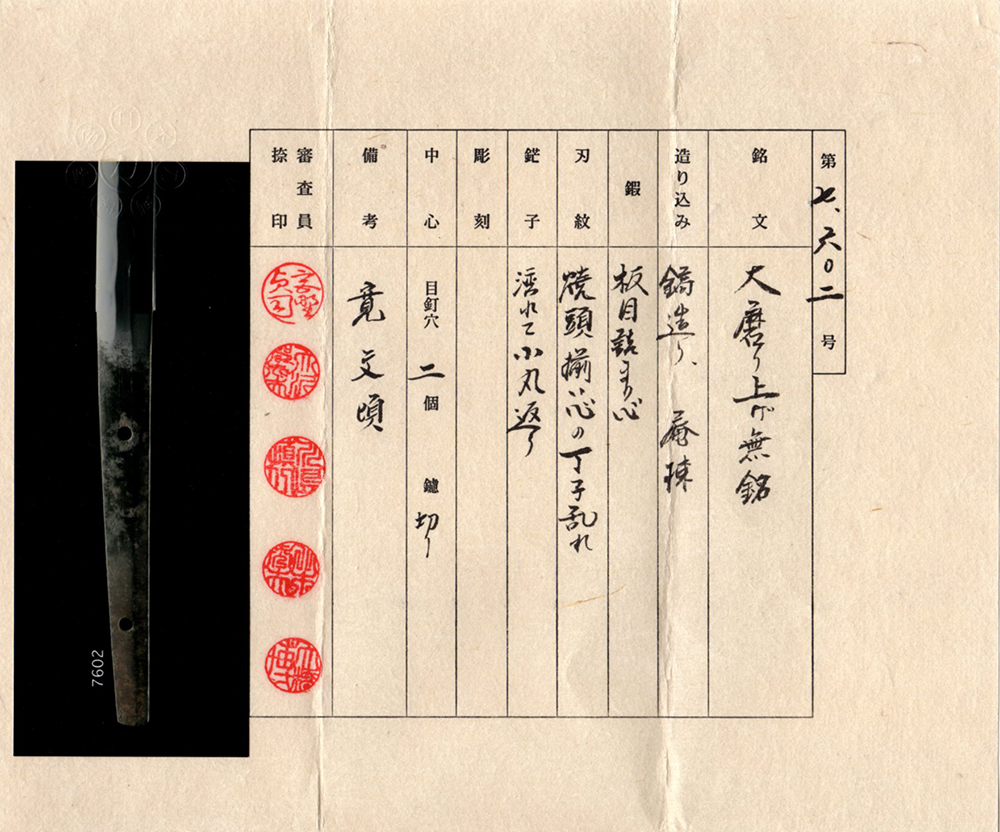 第七、六〇二号
銘文 大磨り上げ無銘
造り込み 鎬造り、庵棟
鍜 板目詰まり心
刃紋 焼頭揃い心の丁子乱れ
鋩子 湾れて小丸返り
彫刻
中心 目釘穴 二個 鑢 切り
備考 寛文頃
審査員
捺印
7602